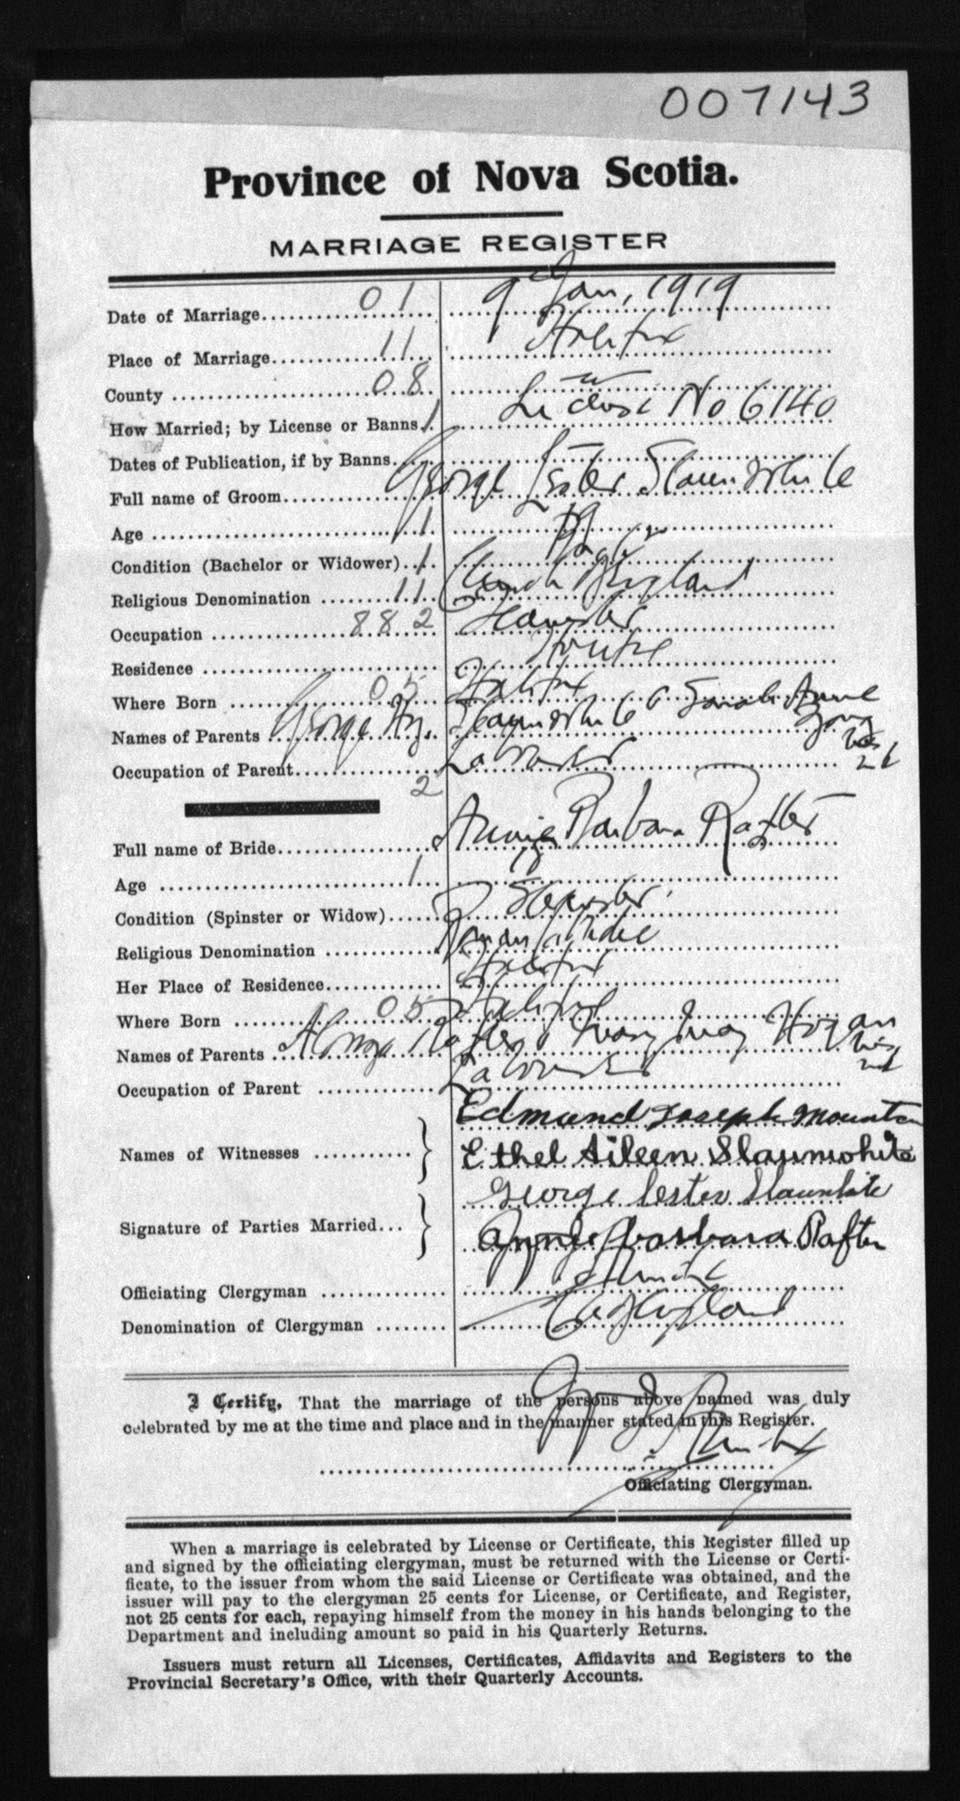 007143
Province of Nova Scotia.
MARRIAGE REGISTER
Date of Marriage 01 9th Jan, 1919
Place of Marriage 11 Halifax
County 08 "
How Married; by License or Banns 1 License No 6140
Dates of Publication, if by Banns
Full name of Groom George Lester Slaunwhite
Age 1 19
Condition (Bachelor or Widower) 1
Religious Denomination 11 Church England
Occupation 882 Teamster
Residence Halifax
Where Born 05 Halifax
Names of Parents George Hy. Slaunwhite & Sarah Anne
Occupation of Parent Labourer
2
Full name of Bride Annie Barbara Rafter
Age 1
Condition (Spinster or Widow) Spinster
Religious Denomination Roman Catholic
Her Place of Residence Halifax
Where Born 05 Halifax
Names of Parents Rafter & Mary Hogan
Occupation of Parent Labourer
Names of Witnesses } Edmund Joseph Mountain
Ethel Aileen Slaunwhite
Signature of Parties Married } George Lester Slaunwhite
Annie Barbara Rafter
Officiating Clergyman
Denomination of Clergyman Ch of England
I Certify, That the marriage of the persons above named was duly
celebrated by me at the time and place and in the manner stated in this Register.
Officiating Clergyman.
When a marriage is celebrated by License or Certificate, this Register filled up
and signed by the officiating clergyman, must be returned with the License or Certi-
ficate, to the issuer from whom the said License or Certificate was obtained, and the
issuer will pay to the clergyman 25 cents for License, or Certificate, and Register,
not 25 cents for each, repaying himself from the money in his hands belonging to the
Department and including amount so paid in his Quarterly Returns.
Issuers must return all Licenses, Certificates, Affidavits and Registers to the
Provincial Secretary's Office, with their Quarterly Accounts.